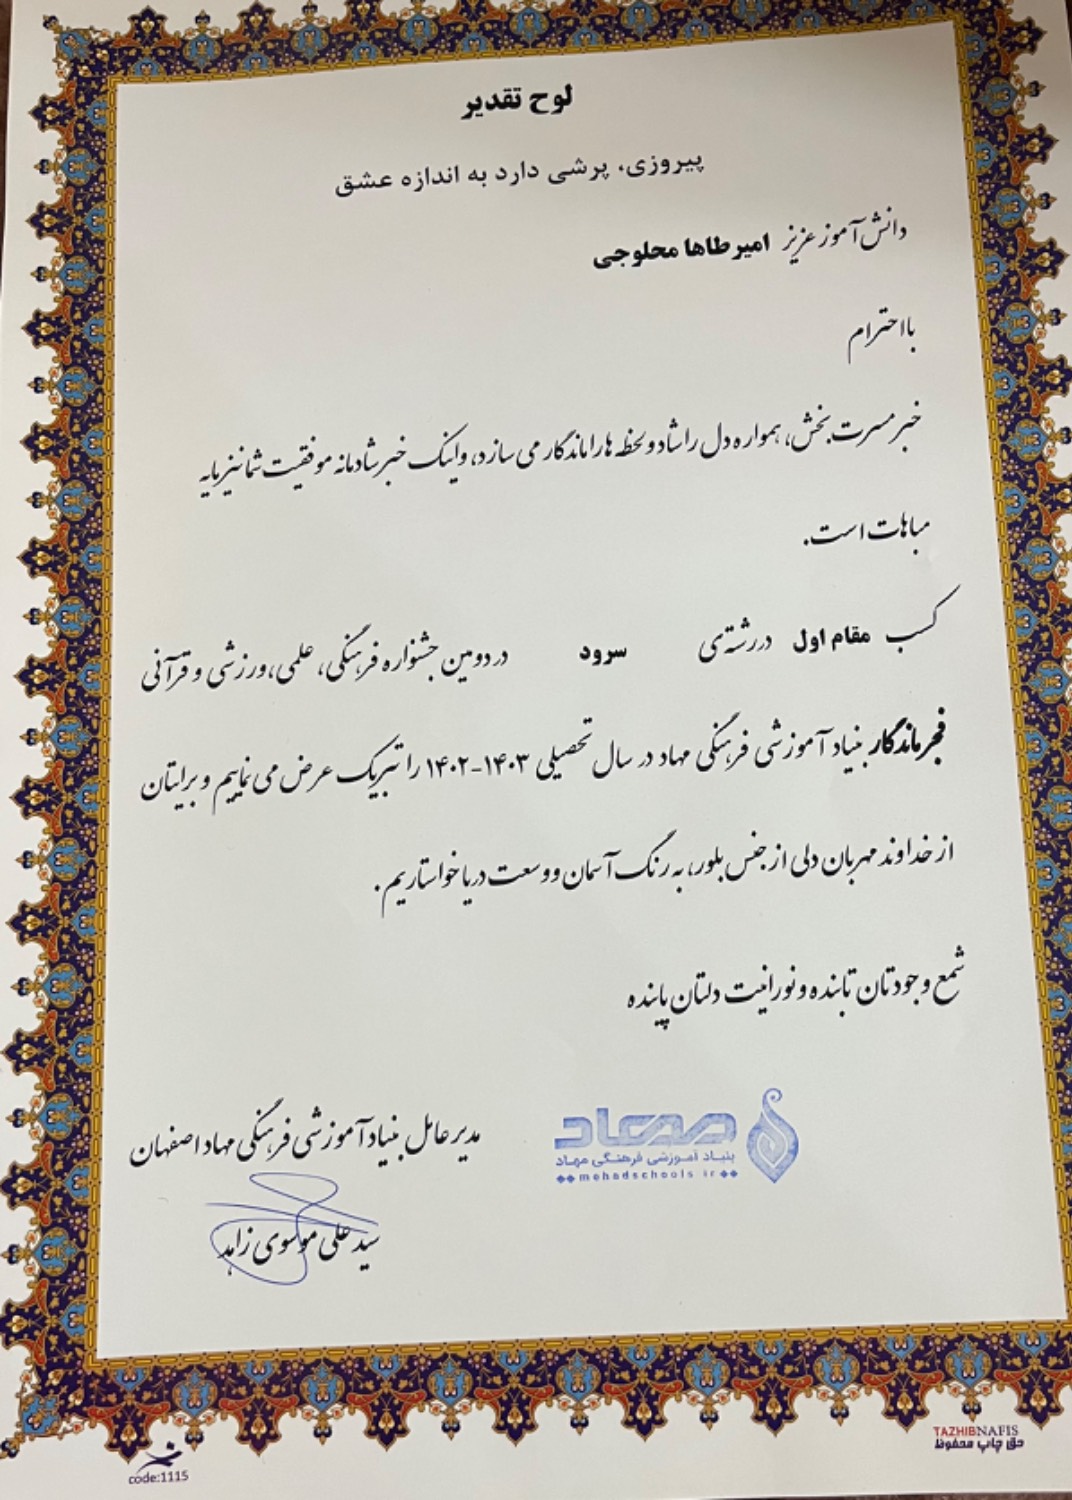 لوح تقدیر
پیروزی، پرشی دارد به اندازه عشق
دانش آموز عزیز امیرطاها محلوجی
بااحترام
خبر مسرت بخش، همواره دل را شاد و لحظه ها را ماندگار می سازد، و اینک خبر شادمانه موفقیت شما نیز مایه
مباهات است.
کسب مقام اول در رشته‌ی سرود در دومین جشنواره فرهنگی، علمی، ورزشی و قرآنی
فجر ماندگار بنیاد آموزشی فرهنگی مهاد در سال تحصیلی ۱۴۰۳-۱۴۰۲ را تبریک عرض می نماییم و برایتان
از خداوند مهربان دلی از جنس بلور، به رنگ آسمان و وسعت دریا خواستاریم.
شمع وجودتان تابنده و نورانیت دلتان پاینده
مهاد
بنیاد آموزشی فرهنگی مهاد
mehadschools.ir
مدیرعامل بنیاد آموزشی فرهنگی مهاد اصفهان
سید علی موسوی زاهد
code:1115
TAZHIBNAFIS
حق چاپ محفوظ